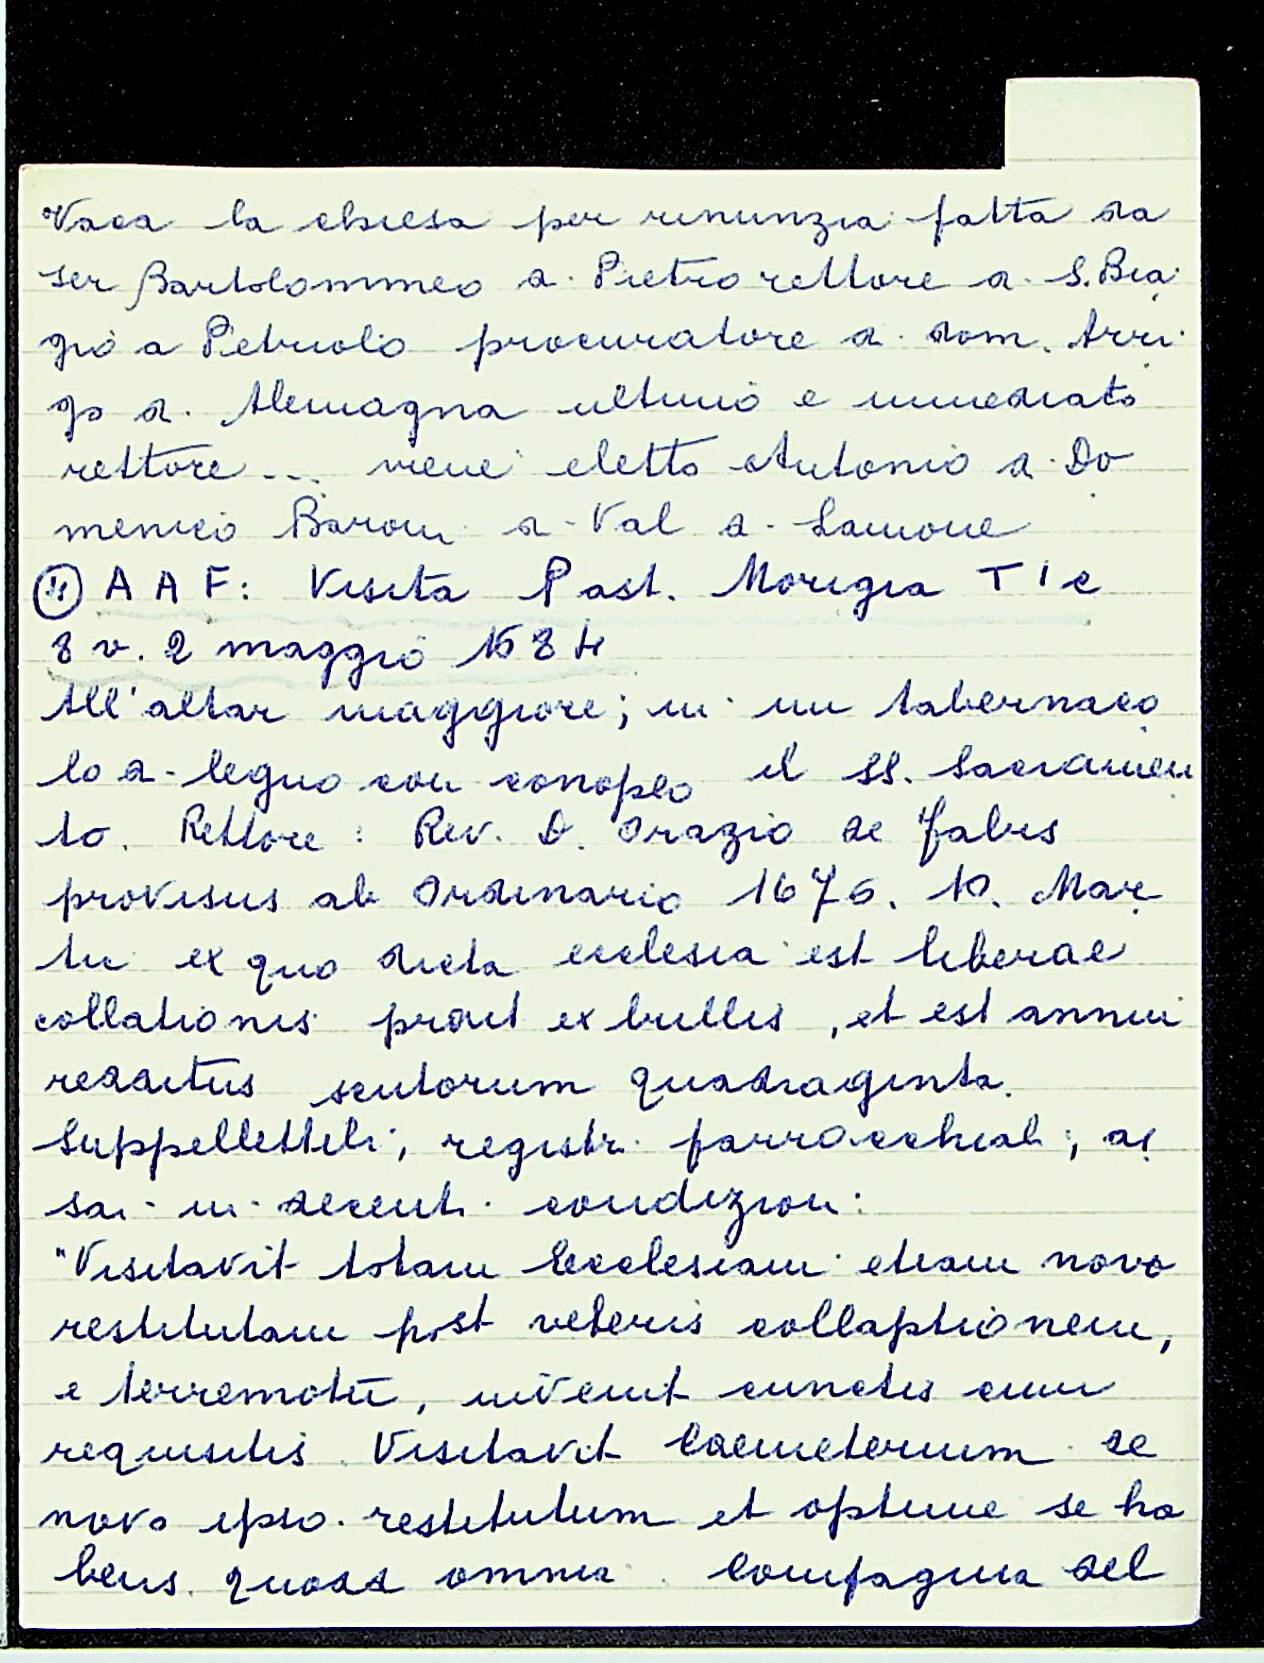 Vaca la chiesa per rinunzia fatta da
ser Bartolommeo di Pietro rettore di S. Bia
gio a Petriolo procuratore di dom. Arri
go di Alemagna ultimo e immediato
rettore ... viene eletto Antonio di Do
menico Baroni di Val di Lamone
A A F: Visita Past. Morigia T I c
8 v. 2 maggio 1684
All'altar maggiore; in un tabernaco
lo di legno con conopeo il SS. Sacramen
to. Rettore: Rev. D. Orazio de Fabris
provisus ab Ordinario 1676. 10. Mar
tii ex quo dicta ecclesia est liberae
collationis prout ex bullis, et est annui
redditus scutorum quadraginta.
Suppellettili, registri parrocchiali, as
sai in decenti condizioni:
"Visitavit totam Ecclesiam etiam novo
restitutam post veteris collaptionem,
e terremotu, invenit cunctis cum
requisitis. Visitavit Coemeterium de
novo ipso restitutum et optime se ha
bens quoad omnia. Compagnia del